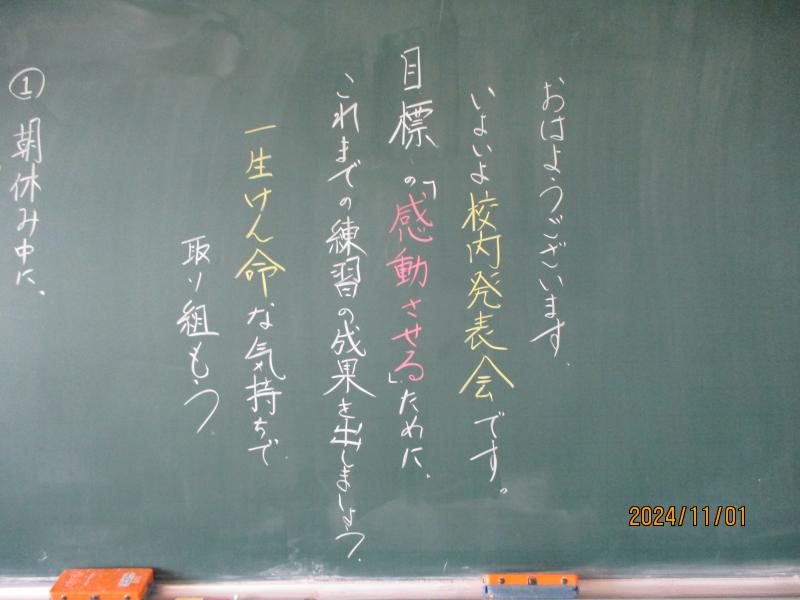 おはようございます.
いよいよ校内発表会です。
目標の「感動させる」ために、
これまでの練習の成果を出しましょう.
一生けん命な気持ちで
取り組もう.
① 朝休み中に、
2024/11/01